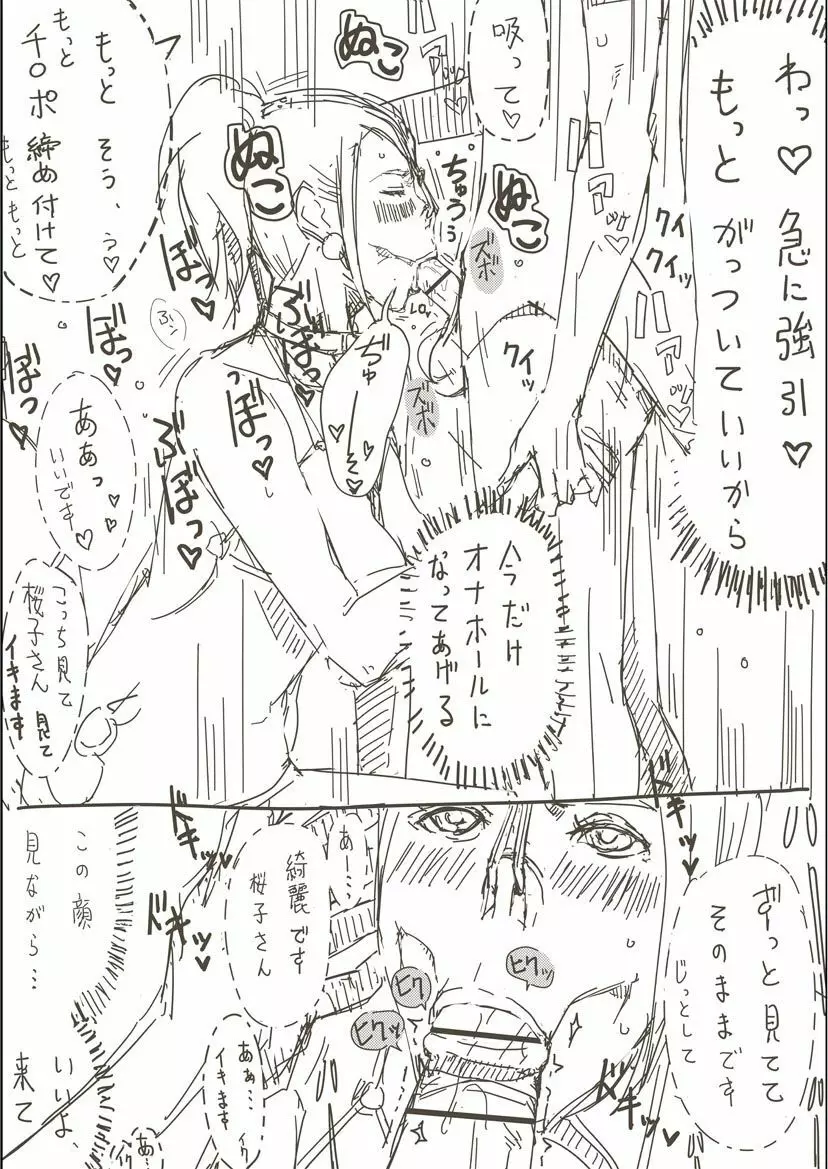 わっ♡
急に強引♡
もっと
がっついていいから
吸って♡
もっと
そう、
う♡
もっと
チ○ポ締め付けて♡
もっともっと
ぬこ
ぬこ
ぬこ
ちゅうぅ
ハァハァ
クイクイッ
クイッ
ズボ
ズボ
ぼっ♡
ぼっ♡
ぼっ♡
ぶぼっ♡
ああっ♡
いいです♡
こっち見て
桜子さん 見て
イキます
今だけ
オナホールに
なってあげる
ずっと見てて
そのままです
じっとして
あー…
綺麗です
桜子さん
この顔
見ながら…
いいよ
来て
ああ…
イキます
イク
あ…
イク
ドキッ♥
ドキッ♥
ドキッ♥
ドキッ♥
ヒクッ
ヒク
ヒクッ